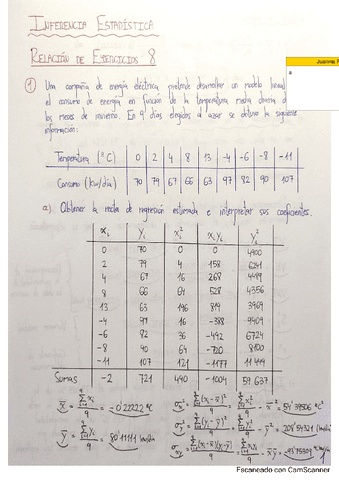 INFERENCIA ESTADÍSTICA
RELACIÓN DE EJERCICIOS 8
Juanma
1) Una compañía de energía eléctrica pretende desarrollar un modelo lineal
el consumo de energía en función de la temperatura media diurna
los meses de invierno. En 9 días elegidos al azar se obtuvo la siguiente
información:
Temperatura (°C) 0 2 4 8 13 -4 -6 -8 -11
Consumo (kw/día) 70 79 67 66 63 97 82 90 107
a) Obtener la recta de regresión estimada e interpretar sus coeficientes.
xi yi xi² xiyi yi²
0 70 0 0 4900
2 79 4 158 6241
4 67 16 268 4489
8 66 64 528 4356
13 63 169 819 3969
-4 97 16 -388 9409
-6 82 36 -492 6724
-8 90 64 -720 8100
-11 107 121 -1177 11449
Sumas -2 721 490 -1004 59.637
Escaneado con CamScanner